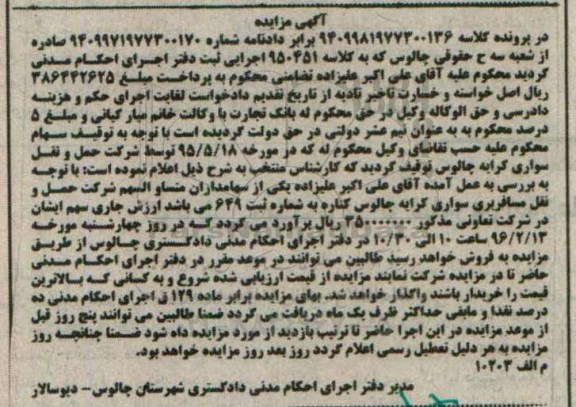 آگهی مزایده
در پرونده کلاسه ۹۴۰۹۹۸۱۹۷۷۳۰۰۱۳۶ برابر دادنامه شماره ۹۴۰۹۹۷۱۹۷۷۳۰۰۱۷۰ صادره
از شعبه سه ح حقوقی چالوس که به کلاسه ۹۵۰۴۵۱ اجرایی ثبت دفتر اجرای احکام مدنی
گردید محکوم علیه آقای علی اکبر علیزاده تضامنی محکوم به پرداخت مبلغ ۳۸۶۴۴۲۶۲۵
ریال اصل خواسته و خسارت تاخیر تادیه از تاریخ تقدیم دادخواست لغایت اجرای حکم و هزینه
دادرسی و حق الوکاله وکیل در حق محکوم له بانک تجارت با وکالت خانم میار کیانی و مبلغ ۵
درصد محکوم به به عنوان نیم عشر دولتی در حق دولت گردیده است با توجه به توقیف سهام
محکوم علیه حسب تقاضای وکیل محکوم له که در مورخه ۹۵/۵/۱۸ توسط شرکت حمل و نقل
سواری کرایه چالوس توقیف گردید که کارشناس منتخب به شرح ذیل اعلام نموده است: با توجه
به بررسی به عمل آمده آقای علی اکبر علیزاده یکی از سهامداران متساو السهم شرکت حمل و
نقل مسافربری سواری کرایه چالوس کناره به شماره ثبت ۶۴۹ می باشد ارزش جاری سهم ایشان
در شرکت تعاونی مذکور ریال برآورد می گردد که در روز چهارشنبه مورخه
۹۶/۲/۱۳ ساعت ۱۰ الی ۱۰/۳۰ در دفتر اجرای احکام مدنی دادگستری چالوس از طریق
مزایده به فروش خواهد رسید طالبین می توانند در موعد مقرر در دفتر اجرای احکام مدنی
حاضر تا در مزایده شرکت نمایند مزایده از قیمت ارزیابی شده شروع و به کسانی که بالاترین
قیمت را خریدار باشند واگذار خواهد شد. بهای مزایده برابر ماده ۱۲۹ ق اجرای احکام مدنی ده
درصد نقدا و مابقی حداکثر ظرف یک ماه دریافت می گردد ضمنا طالبین می توانند پنج روز قبل
از موعد مزایده در این اجرا حاضر تا ترتیب بازدید از مورد مزایده داه شود ضمنا چنانچه روز
مزایده به هر دلیل تعطیل رسمی اعلام گردد روز بعد روز مزایده خواهد بود.
م الف ۱۰۲۰۳
مدیر دفتر اجرای احکام مدنی دادگستری شهرستان چالوس – دیوسالار